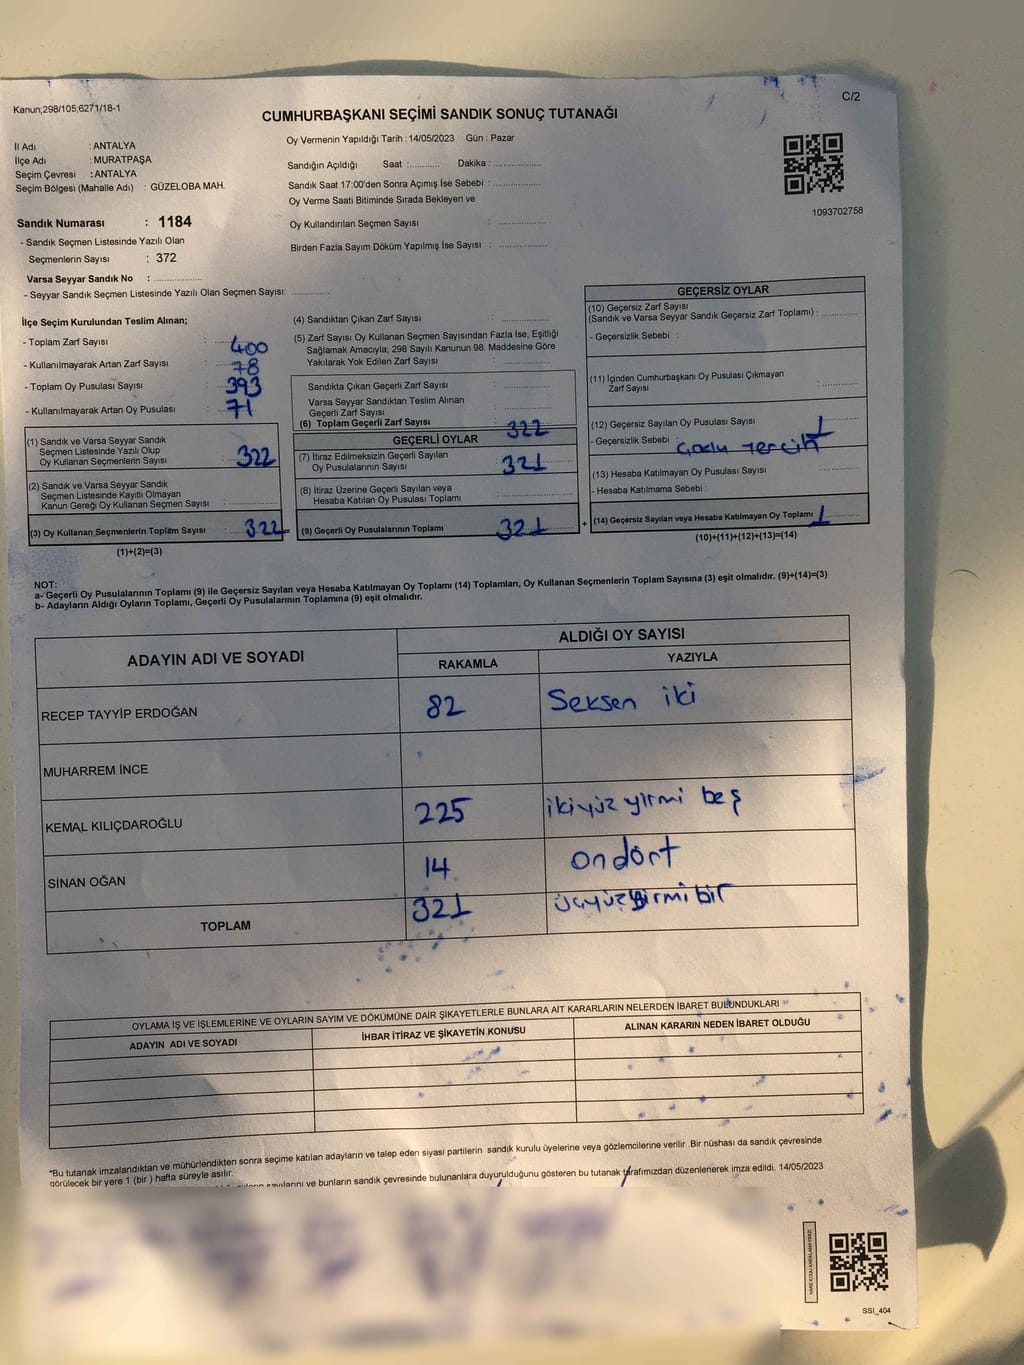 Kanun;298/105;6271/18-1
C/2
CUMHURBAŞKANI SEÇİMİ SANDIK SONUÇ TUTANAĞI
İl Adı : ANTALYA
İlçe Adı : MURATPAŞA
Seçim Çevresi : ANTALYA
Seçim Bölgesi (Mahalle Adı) : GÜZELOBA MAH.
Sandık Numarası : 1184
- Sandık Seçmen Listesinde Yazılı Olan
Seçmenlerin Sayısı : 372
Varsa Seyyar Sandık No : ..................
- Seyyar Sandık Seçmen Listesinde Yazılı Olan Seçmen Sayısı: ..............
Oy Vermenin Yapıldığı Tarih : 14/05/2023 Gün : Pazar
Sandığın Açıldığı Saat :........... Dakika : .................
Sandık Saat 17:00'den Sonra Açımış İse Sebebi : .................
Oy Verme Saati Bitiminde Sırada Bekleyen ve
Oy Kullandırılan Seçmen Sayısı : .................
Birden Fazla Sayım Döküm Yapılmış İse Sayısı : .................
1093702758
İlçe Seçim Kurulundan Teslim Alınan;
- Toplam Zarf Sayısı : 400
- Kullanılmayarak Artan Zarf Sayısı : 78
- Toplam Oy Pusulası Sayısı : 393
- Kullanılmayarak Artan Oy Pusulası : 71
(1) Sandık ve Varsa Seyyar Sandık
Seçmen Listesinde Yazılı Olup
Oy Kullanan Seçmenlerin Sayısı : 322
(2) Sandık ve Varsa Seyyar Sandık
Seçmen Listesinde Kayıtlı Olmayan
Kanun Gereği Oy Kullanan Seçmen Sayısı : ..............
(3) Oy Kullanan Seçmenlerin Toplam Sayısı : 322
(1)+(2)=(3)
=
(4) Sandıktan Çıkan Zarf Sayısı : ..............
(5) Zarf Sayısı Oy Kullanan Seçmen Sayısından Fazla İse, Eşitliği
Sağlamak Amacıyla; 298 Sayılı Kanunun 98. Maddesine Göre
Yakılarak Yok Edilen Zarf Sayısı : ..............
Sandıkta Çıkan Geçerli Zarf Sayısı : ..............
Varsa Seyyar Sandıktan Teslim Alınan
Geçerli Zarf Sayısı : ..............
(6) Toplam Geçerli Zarf Sayısı : 322
GEÇERLİ OYLAR
(7) İtiraz Edilmeksizin Geçerli Sayılan
Oy Pusulalarının Sayısı : 321
(8) İtiraz Üzerine Geçerli Sayılan veya
Hesaba Katılan Oy Pusulası Toplamı : ..............
(9) Geçerli Oy Pusulalarının Toplamı : 321
+
GEÇERSİZ OYLAR
(10) Geçersiz Zarf Sayısı
(Sandık ve Varsa Seyyar Sandık Geçersiz Zarf Toplamı) : ..............
- Geçersizlik Sebebi :
(11) İçinden Cumhurbaşkanı Oy Pusulası Çıkmayan
Zarf Sayısı : ..............
(12) Geçersiz Sayılan Oy Pusulası Sayısı : 1
- Geçersizlik Sebebi : Çoklu Tercih
(13) Hesaba Katılmayan Oy Pusulası Sayısı : ..............
- Hesaba Katılmama Sebebi :
(14) Geçersiz Sayılan veya Hesaba Katılmayan Oy Toplamı : 1
(10)+(11)+(12)+(13)=(14)
NOT:
a- Geçerli Oy Pusulalarının Toplamı (9) ile Geçersiz Sayılan veya Hesaba Katılmayan Oy Toplamı (14) Toplamları, Oy Kullanan Seçmenlerin Toplam Sayısına (3) eşit olmalıdır. (9)+(14)=(3)
b- Adayların Aldığı Oyların Toplamı, Geçerli Oy Pusulalarının Toplamına (9) eşit olmalıdır.
ADAYIN ADI VE SOYADI
ALDIĞI OY SAYISI
RAKAMLA YAZIYLA
RECEP TAYYİP ERDOĞAN 82 Seksen iki
MUHARREM İNCE
KEMAL KILIÇDAROĞLU 225 ikiyüz yirmi beş
SİNAN OĞAN 14 ondört
TOPLAM 321 üçyüz yirmi bir
OYLAMA İŞ VE İŞLEMLERİNE VE OYLARIN SAYIM VE DÖKÜMÜNE DAİR ŞİKAYETLERLE BUNLARA AİT KARARLARIN NELERDEN İBARET BULUNDUKLARI
ADAYIN ADI VE SOYADI İHBAR İTİRAZ VE ŞİKAYETİN KONUSU ALINAN KARARIN NEDEN İBARET OLDUĞU
*Bu tutanak imzalandıktan ve mühürlendikten sonra seçime katılan adayların ve talep eden siyasi partilerin sandık kurulu üyelerine veya gözlemcilerine verilir .Bir nüshası da sandık çevresinde
görülecek bir yere 1 (bir ) hafta süreyle asılır.
sayılarını ve bunların sandık çevresinde bulunanlara duyurulduğunu gösteren bu tutanak tarafımızdan düzenlenerek imza edildi. 14/05/2023
SSI_404